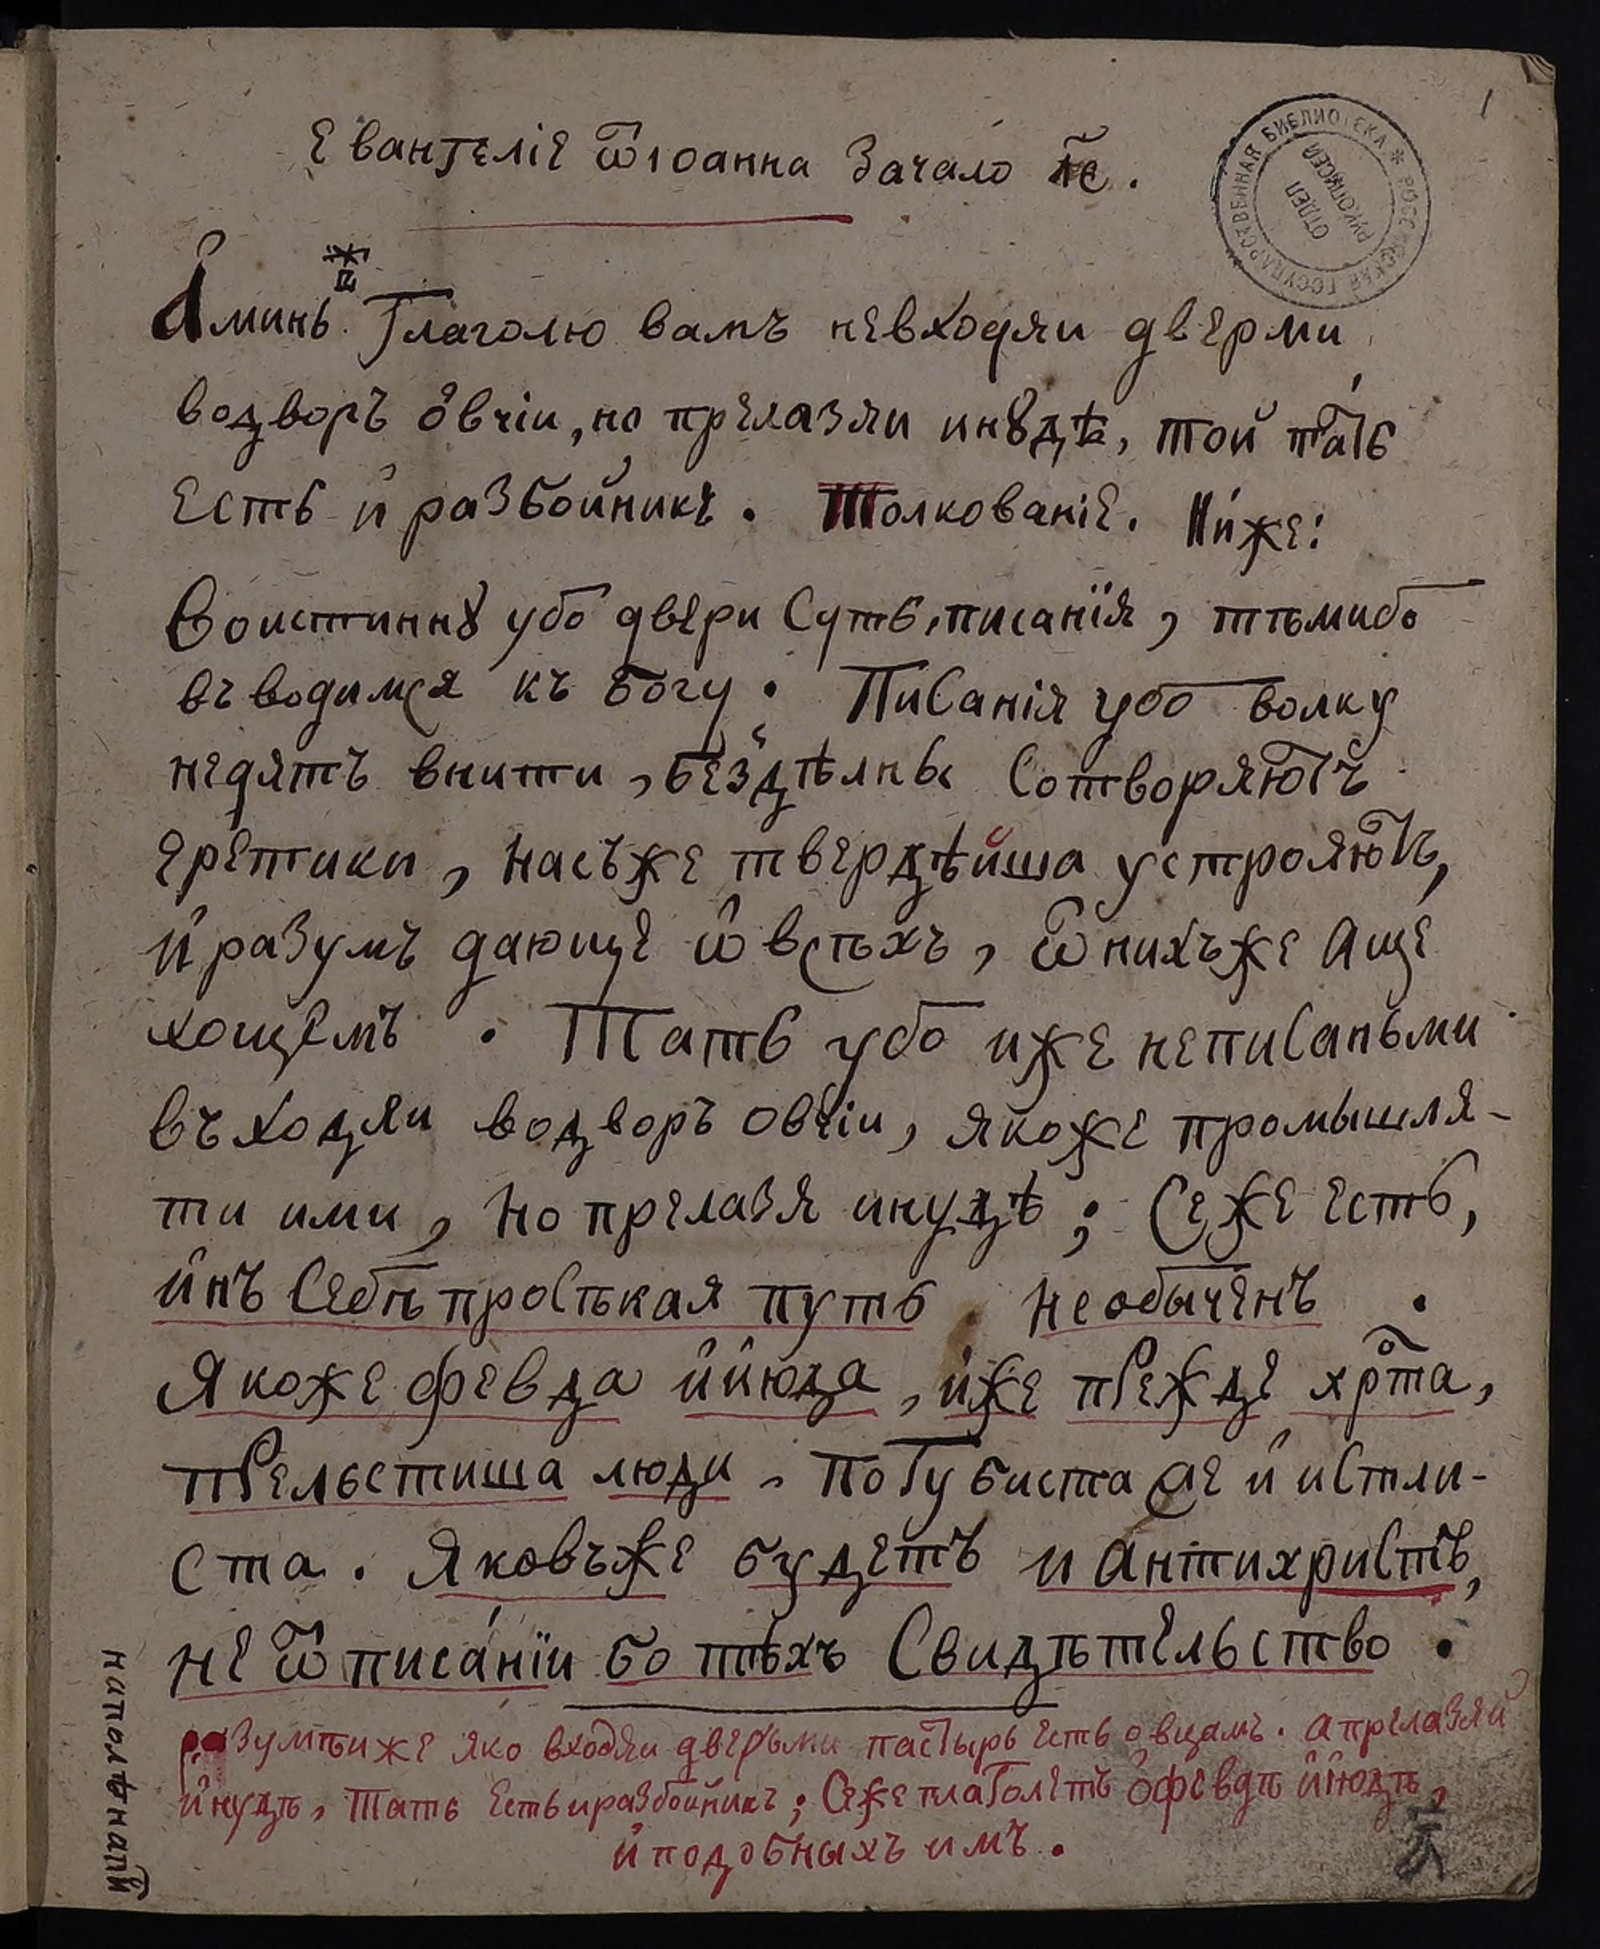 Евангеліе ѿ іоанна Зачало л҃е.
1
РОССИЙСКАЯ ГОСУДАРСТВЕННАЯ БИБЛИОТЕКА *
ОТДЕЛ
РУКОПИСЕЙ
Аминь. Глаголю вамъ невходяи дверми
водворъ овчіи, но прелазяи инꙋдѣ, той тать
есть и разбойникъ. Толкованіе. Ниже:
Воистиннꙋ убо двери Суть, писанїя, тѣмибо
въводимся къ богу. Писанія убо волку
недятъ внити, бездѣлны Сотворяютъ
еретики, насъже твердѣйша устрояютъ,
и разумъ дающе ѡ всѣхъ, ѿ нихъже аще
хощемъ. Тать убо иже неписаньми
въходяи водворъ овчіи, якоже промышля-
ти ими, но прелазя инудѣ; Сеже есть,
инъ Себѣ просѣкая путь необыченъ.
Якоже февда и июда, иже прежде хрⷭ҇та,
прельстиша люди, погубиста Сѧ и истли-
ста. Яковъже будетъ и антихристъ,
не ѿ писанїи бо тѣхъ Свидѣтельство.
разумѣиже яко входяи дверьми пастырь есть овцамъ. а прелазяй
инудѣ, тать есть и разбойникъ; Сеже глаголетъ о февдѣ и июдѣ,
и подобныхъ имъ.